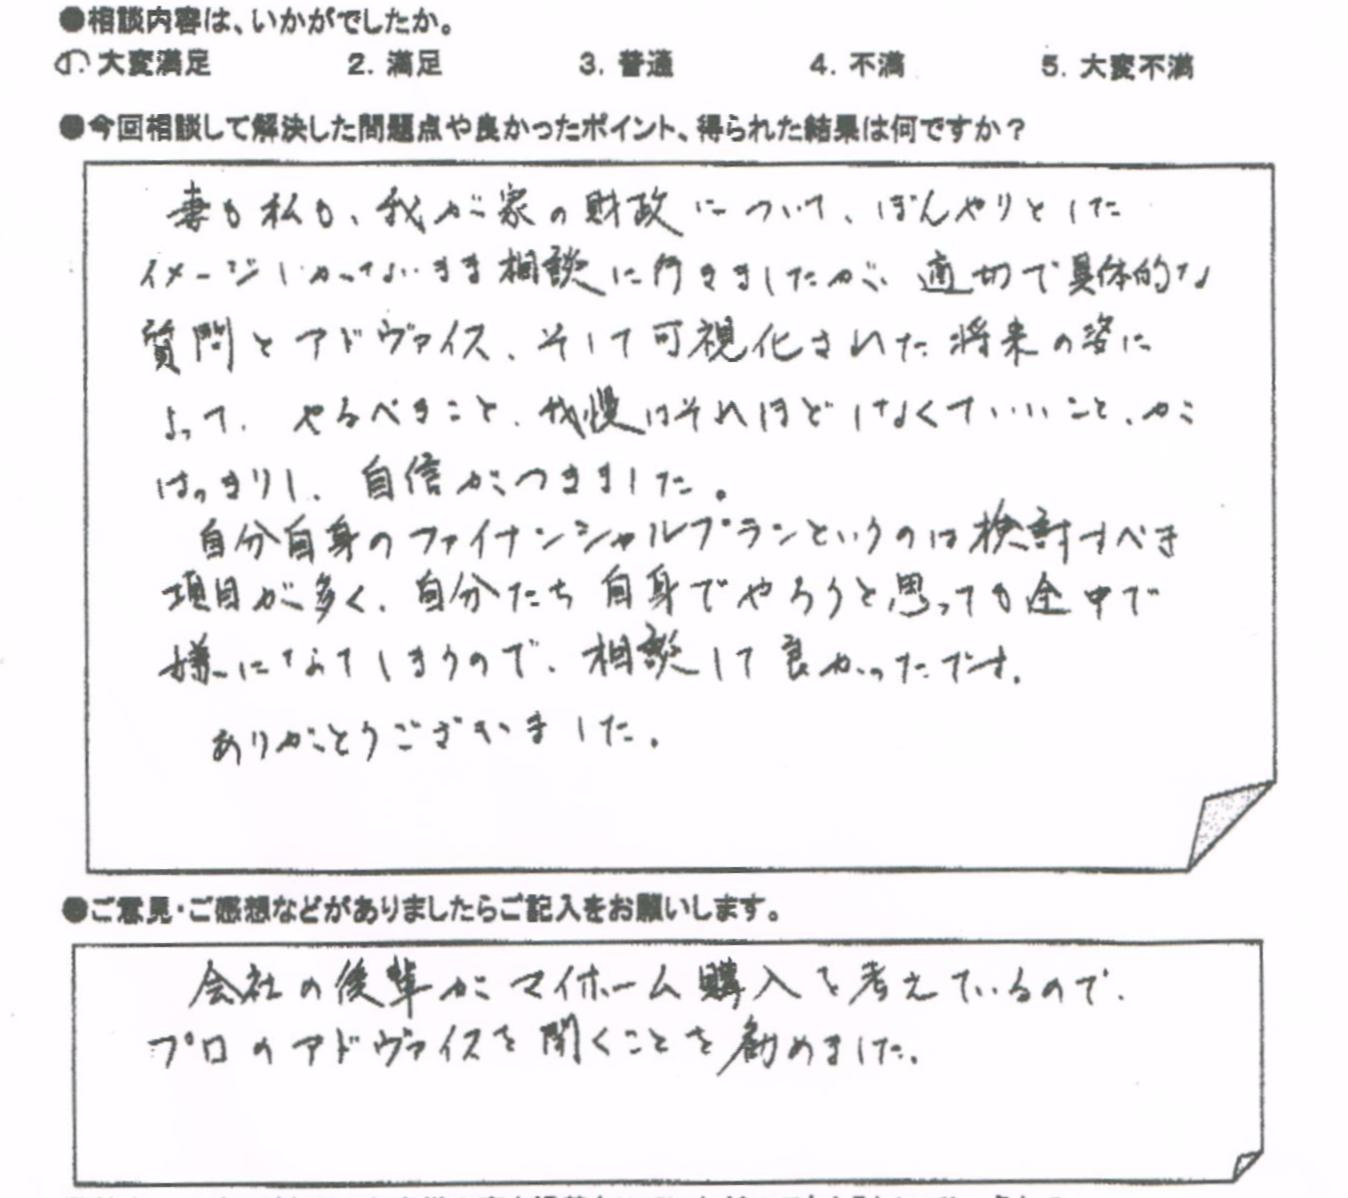 ●相談内容は、いかがでしたか。
1. 大変満足 2. 満足 3. 普通 4. 不満 5. 大変不満
●今回相談して解決した問題点や良かったポイント、得られた結果は何ですか？
妻も私も、我が家の財政について、ぼんやりとした
イメージしかないまま相談に行きましたが、適切で具体的な
質問とアドヴァイス、そして可視化された将来の姿に
よって、やるべきこと、我慢はそれほどしなくていいこと、が
はっきりし、自信がつきました。
自分自身のファイナンシャルプランというのは検討すべき
項目が多く、自分たち自身でやろうと思っても途中で
嫌になってしまうので、相談して良かったです。
ありがとうございました。
●ご意見・ご感想などがありましたらご記入をお願いします。
会社の後輩がマイホーム購入を考えているので、
プロのアドヴァイスを聞くことを勧めました。